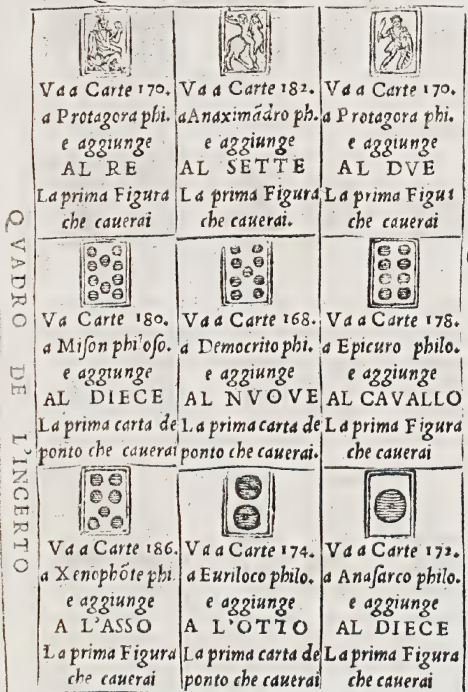 QVADRO DE L'INCERTO
Va a Carte 170.
a Protagora phi.
e aggiunge
AL RE
La prima Figura
che cauerai
Va a Carte 182.
a Anaximãdro ph.
e aggiunge
AL SETTE
La prima Figura
che cauerai.
Va a Carte 170.
a Protagora phi.
e aggiunge
AL DVE
La prima Figur
che cauerai
Va Carte 180.
a Mison phi'oso.
e aggiunge
AL DIECE
La prima carta de
ponto che cauerai
Va a Carte 168.
a Democrito phi.
e aggiunge
AL NVOVE
La prima carta de
ponto che cauerai.
Va a Carte 178.
a Epicuro philo.
e aggiunge
AL CAVALLO
La prima Figura
che cauerai
Va a Carte 186.
a Xenophõte phi
e aggiunge
A L'ASSO
La prima Figura
che cauerai
Va a Carte 174.
a Euriloco philo.
e aggiunge
A L'OTTO
La prima carta de
ponto che cauerai
Va a Carte 172.
a Anasarco philo.
e aggiunge
AL DIECE
La prima Figura
che cauerai